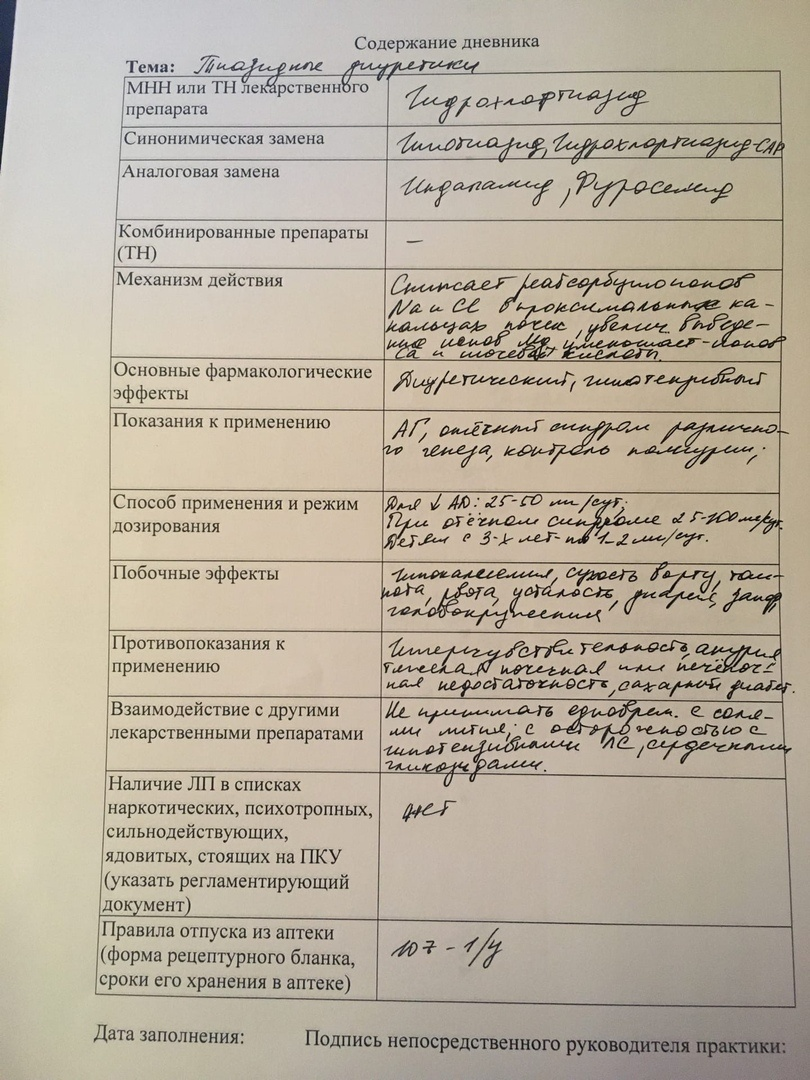 Содержание дневника
Тема: Тиазидные диуретики
МНН или ТН лекарственного
препарата
Гидрохлортиазид
Синонимическая замена
Гипотиазид, Гидрохлортиазид-САР
Аналоговая замена
Индапамид, Фуросемид
Комбинированные препараты
(ТН)
—
Механизм действия
Снижает реабсорбцию ионов
Na и Cl в проксимальных ка-
нальцах почек, увелич. выведе-
ние ионов Mg, уменьшает-ионов
Ca и мочевой кислоты.
Основные фармакологические
эффекты
Диуретический, гипотензивный
Показания к применению
АГ, отёчный синдром различно-
го генеза, контроль полиурии;
Способ применения и режим
дозирования
Для ↓ АД: 25-50 мг/сут;
При отёчном синдроме 25-100 мг/сут.
Детям с 3-х лет-по 1-2 мг/сут.
Побочные эффекты
Гипокалиемия, сухость во рту, тош-
нота, рвота, усталость, диарея, запор,
головокружения
Противопоказания к
применению
Гиперчувствительность, анурия
тяжелая почечная или печёноч-
ная недостаточность, сахарный диабет.
Взаимодействие с другими
лекарственными препаратами
Не принимать одноврем. с соля-
ми лития; с осторожностью с
гипотензивными ЛС, сердечными
гликозидами.
Наличие ЛП в списках
наркотических, психотропных,
сильнодействующих,
ядовитых, стоящих на ПКУ
(указать регламентирующий
документ)
нет
Правила отпуска из аптеки
(форма рецептурного бланка,
сроки его хранения в аптеке)
107-1/у
Дата заполнения: Подпись непосредственного руководителя практики: